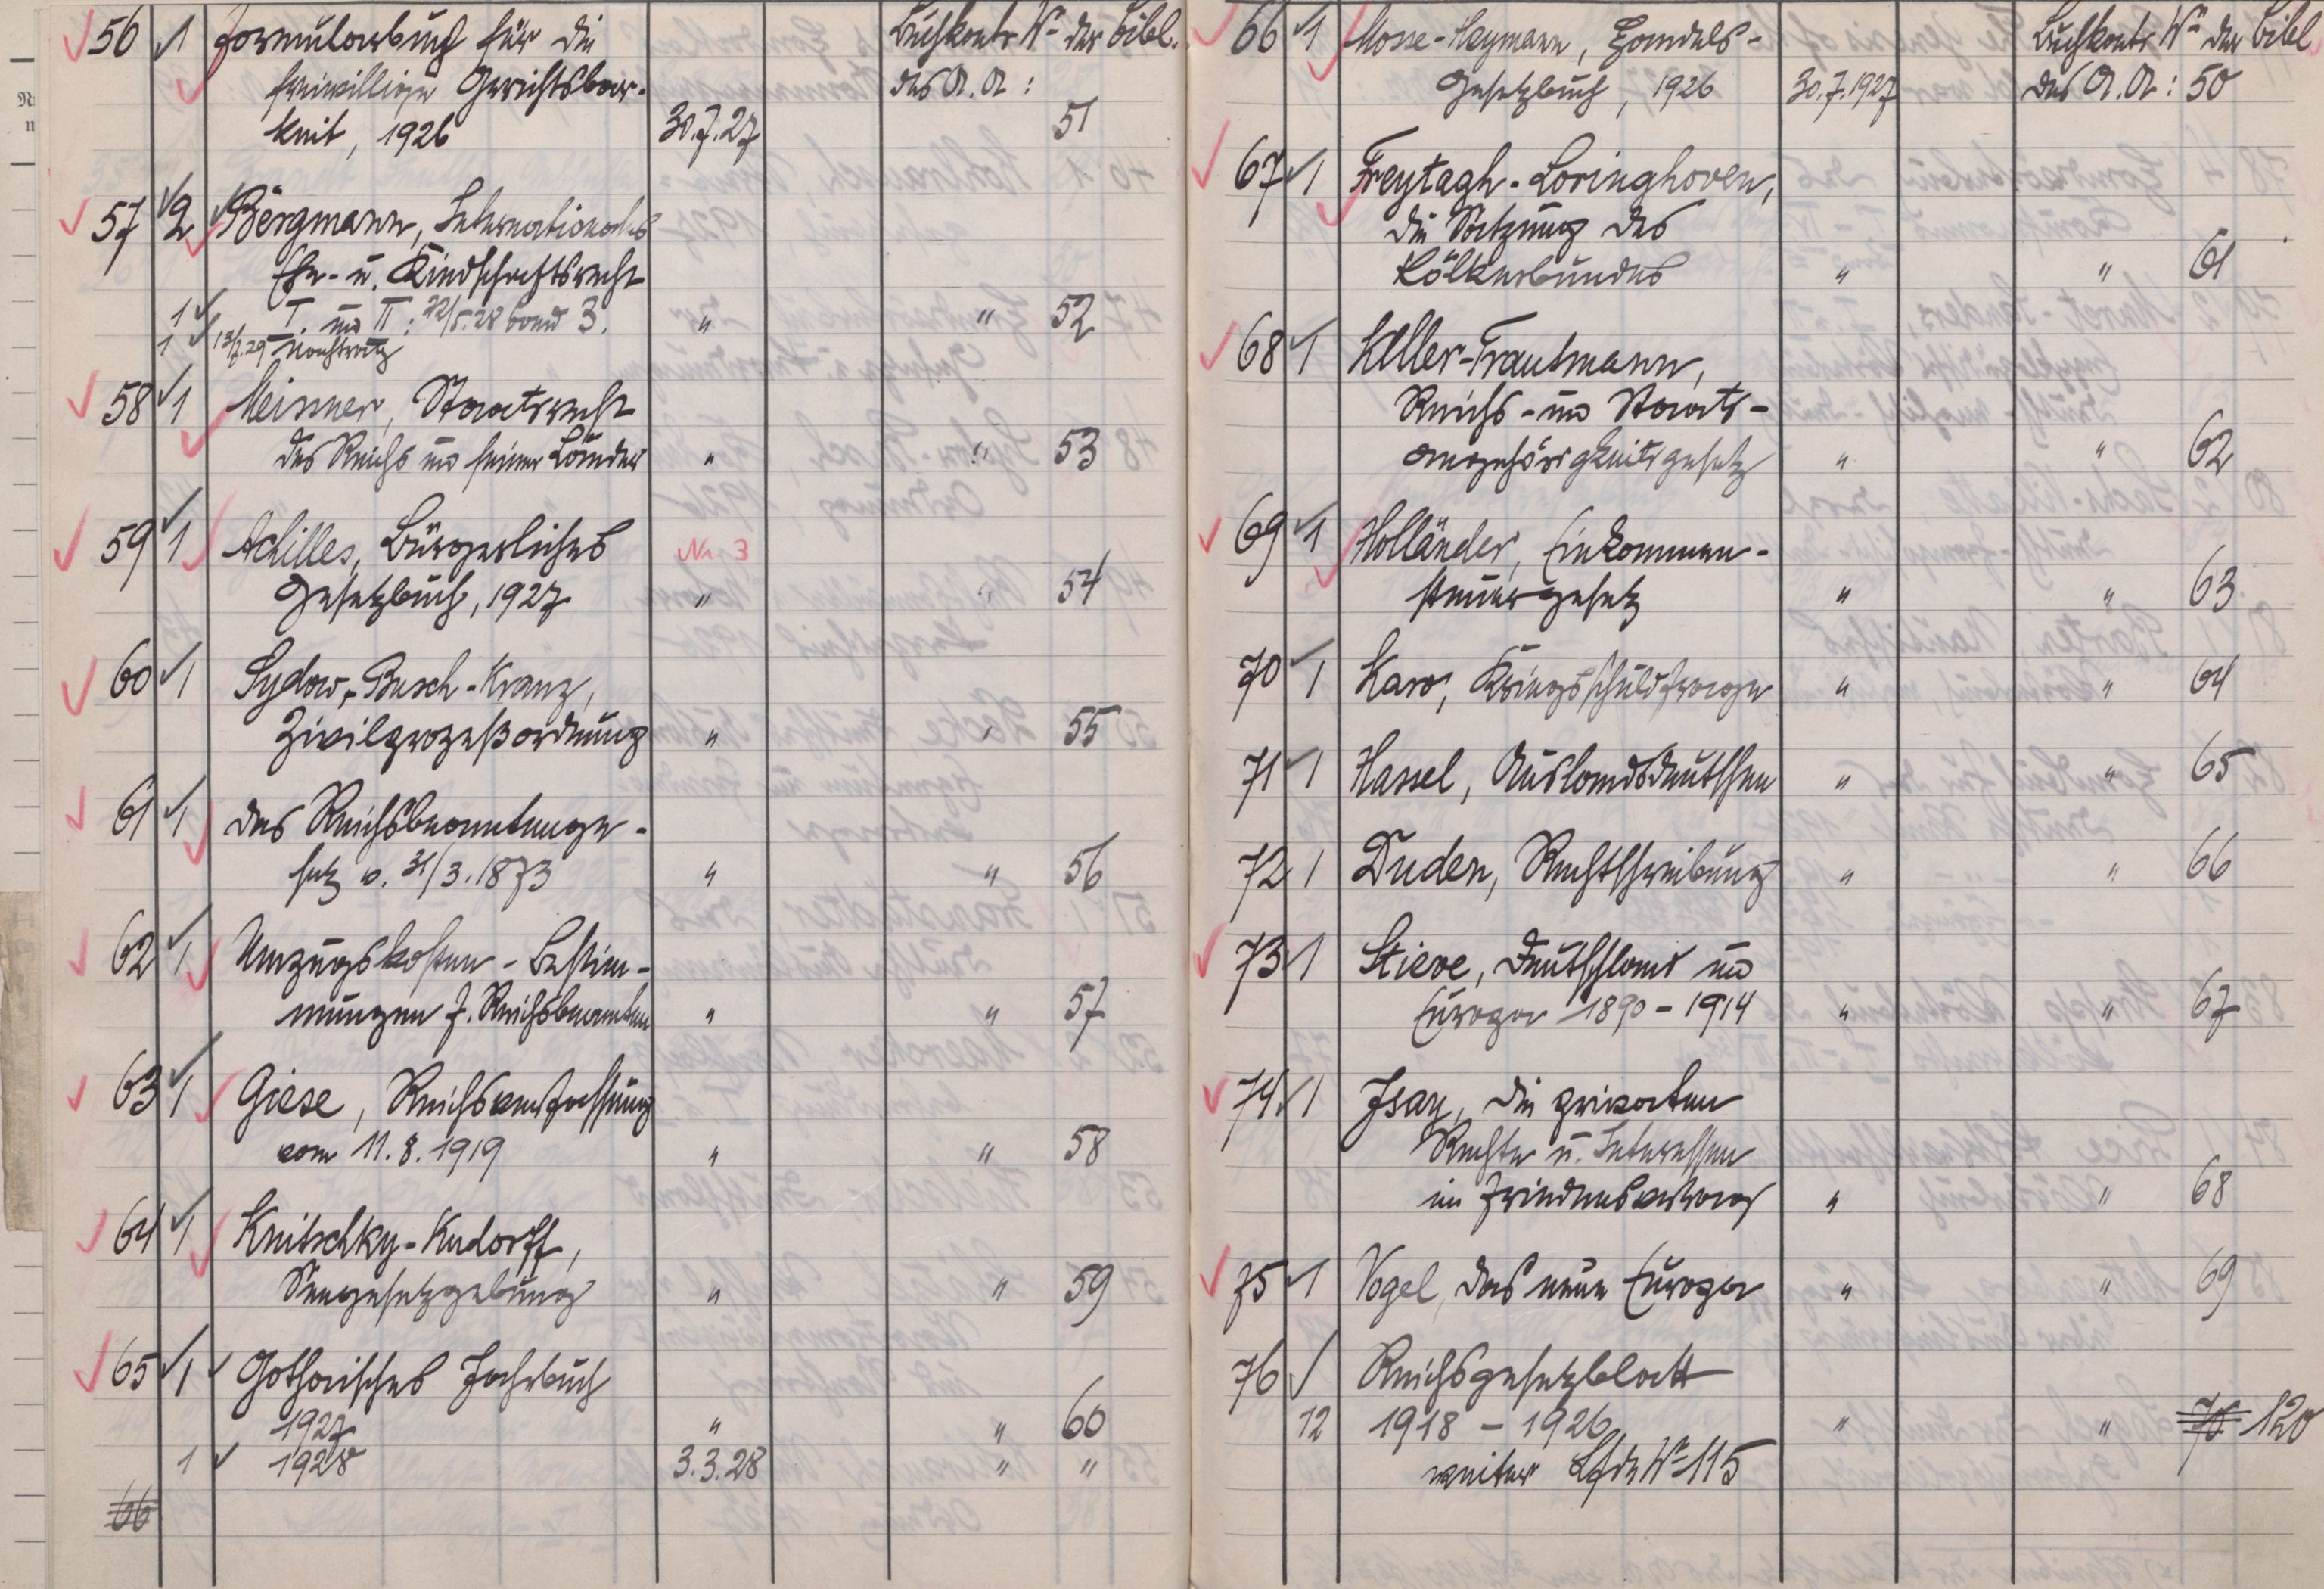 56 1 Formularbuch für die Buchkontr. № der Bibl.
freiwillige Gerichtsbar- des A.A.:
keit, 1926 30.7.27 51
57 2 Bergmann, Internationales
Ehe- u. Kindschaftsrecht
1 I. und II: 22/5.28 Band 3. " " 52
1 13/7.29 Nachtrag
58 1 Meisner, Staatsrecht
des Reichs und seiner Länder " " 53
59 1 Achilles, Bürgerliches Nr. 3
Gesetzbuch, 1927 " " 54
60 1 Sydow-Busch-Kranz,
Zivilprozeßordnung " " 55
61 1 Das Reichsbeamtenge-
setz v. 31/3.1873 " " 56
62 1 Umzugskosten-Bestim-
mungen f. Reichsbeamten " " 57
63 1 Giese, Reichsverfassung
vom 11.8.1919 " " 58
64 1 Knitschky-Rudorff,
Seegesetzgebung " " 59
65 1 Gothaisches Jahrbuch
1927 " " 60
1 1928 3.3.28 " "
66
66 1 Mosse-Heymann, Handels- Buchkontr. № der Bibl
gesetzbuch, 1926 30.7.1927 des A.A.: 50
67 1 Freytagh-Loringhoven,
die Satzung des
Völkerbundes " " 61
68 1 Keller-Trautmann,
Reichs- und Staats-
angehörigkeitsgesetz " " 62
69 1 Holländer, Einkommen-
steuergesetz " " 63
70 1 Karo, Kriegsschuldfrage " " 64
71 1 Hassel, Auslandsdeutschen " " 65
72 1 Duden, Rechtschreibung " " 66
73 1 Stieve, Deutschland und
Europa 1890-1914 " " 67
74 1 Isay, die privaten
Rechte u. Interessen
im Friedensvertrag " " 68
75 1 Vogel, das neue Europa " " 69
76 Reichsgesetzblatt
12 1918-1926 " " 70 120
weiter Lfde № 115